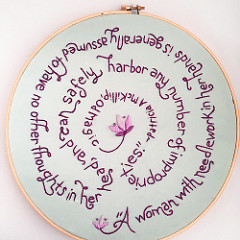 "A woman with needlework in her hands is generally assumed to have no other thoughts in her head, and can safely harbor any number of improprieties." -Patricia A McKillip